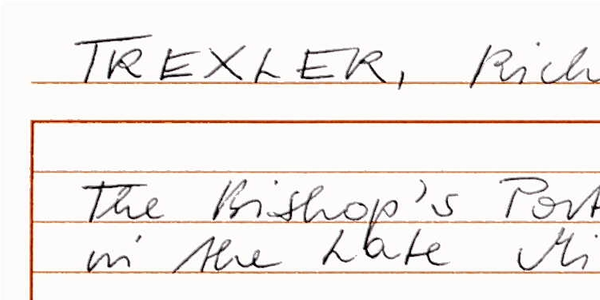 TREXLER, Rich
The Bishop's Port
in the Late Mi